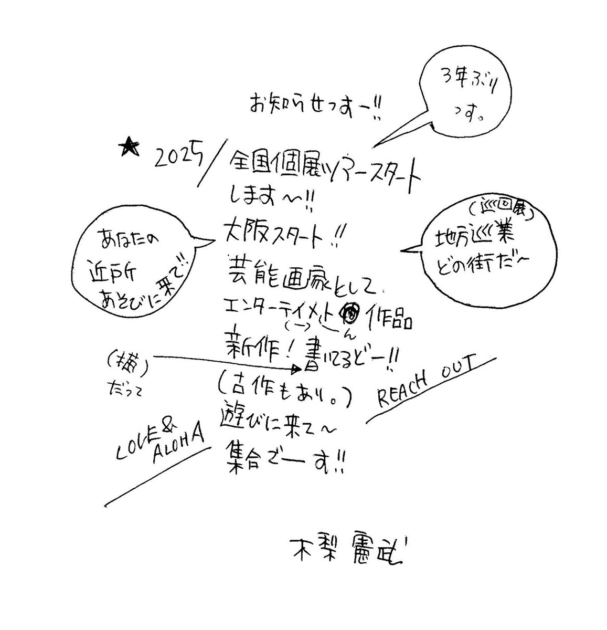 お知らせっすー!!
3年ぶり
っす。
★ 2025/全国個展ツアースタート
します〜!!
大阪スタート!!
あなたの
近所
あそびに来て!!
(巡回展)
地方巡業
どの街だ〜
芸能画家として
エンターテイメト 作品
(ー) ん
新作!書いてるどー!!
(横)
だって
(古作もあり。)
REACH OUT
遊びに来て〜
LOVE &
ALOHA
集合でーす!!
木梨憲武